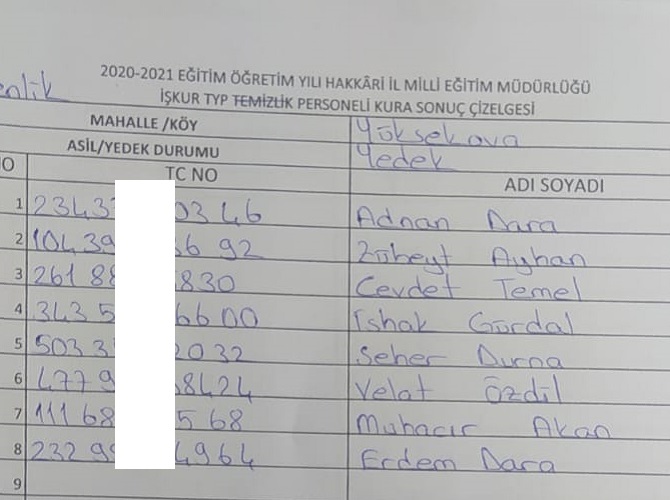 2020-2021 EĞİTİM ÖĞRETİM YILI HAKKÂRİ İL MİLLİ EĞİTİM MÜDÜRLÜĞÜ
enlik İŞKUR TYP TEMİZLİK PERSONELİ KURA SONUÇ ÇİZELGESİ
MAHALLE /KÖY Yüksekova
ASİL/YEDEK DURUMU Yedek
O TC NO ADI SOYADI
1 23433 0346 Adnan Dara
2 10439 6 92 Zübeyt Ayhan
3 26188 830 Cevdet Temel
4 3435 6600 İshak Gürdal
5 5033 2032 Seher Durna
6 4779 8424 Velat Özdil
7 11168 568 Muhacır Akan
8 23299 4964 Erdem Dara
9